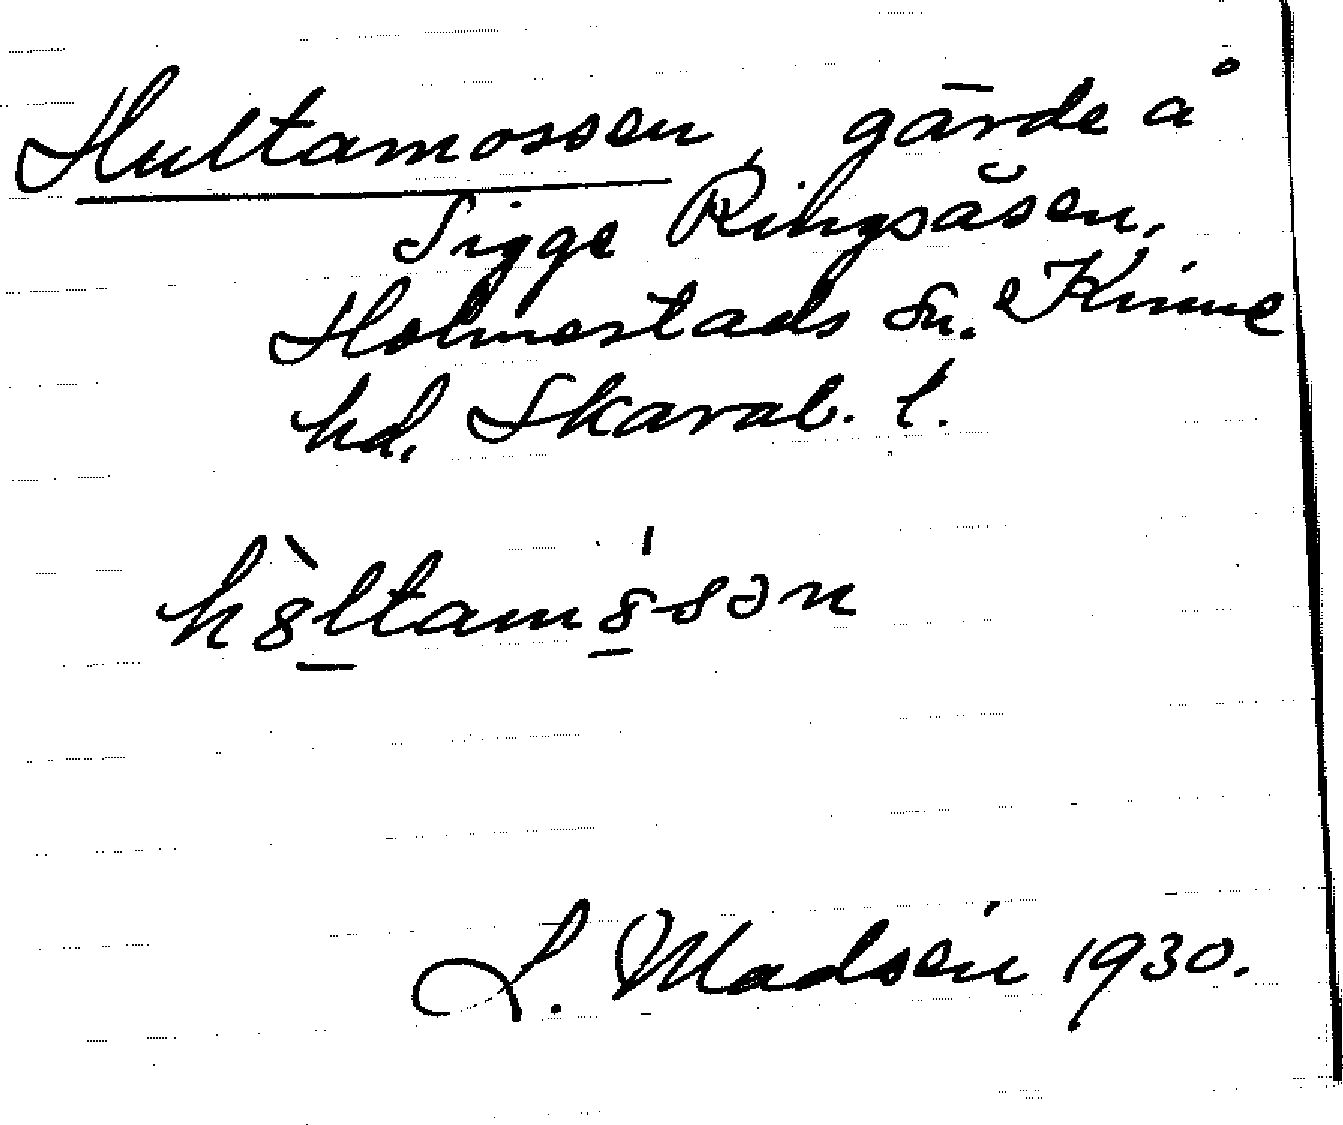 Hultamossen, gärde å
Sigge Ringsåsen,
Holmestads sn. Kinne
hd. Skarab. l.
L. Madsén 1930.